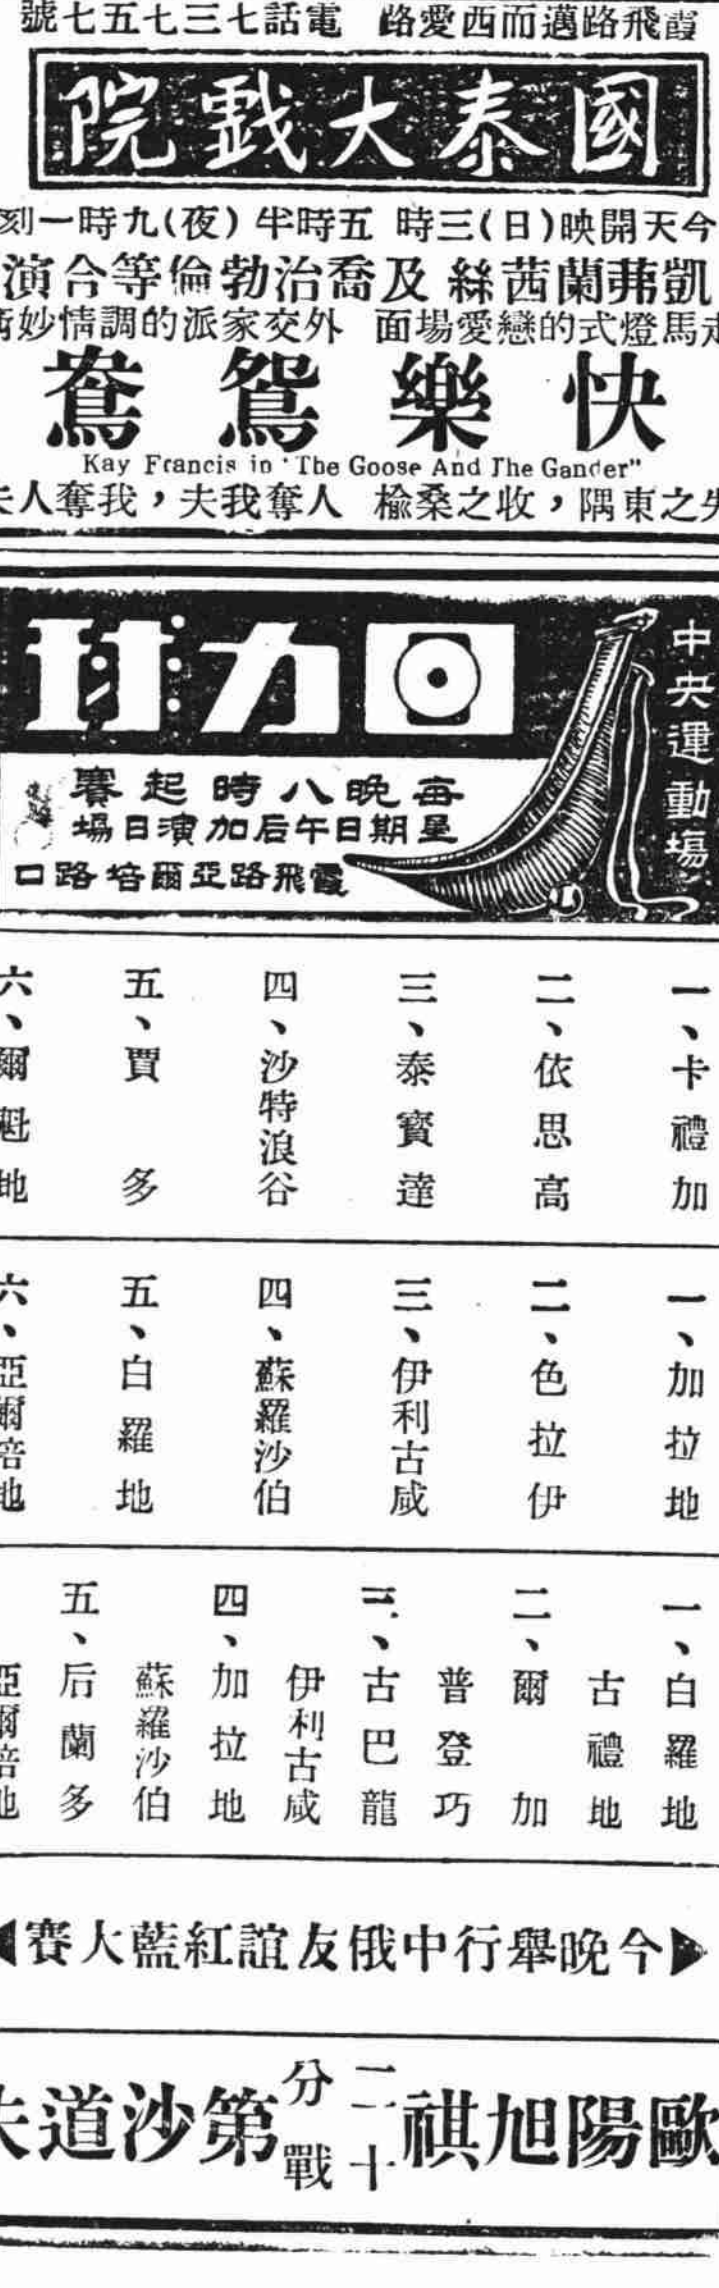 霞飛路邁而西愛路 電話七三七五七號
國泰大戲院
今天開映(日)三時 五時半(夜)九時一刻
凱弗蘭茜絲及喬治勃倫等合演
走馬燈式的戀愛場面 外交家派的調情妙
快樂鴛鴦
Kay Francis in "The Goose And The Gander"
失之東隅，收之桑榆 人奪我夫，我奪人夫
中央運動場
回力球
每晚八時起賽
星期日午后加演日場
霞飛路亞爾培路口
一、卡禮加
二、依思高
三、泰寶達
四、沙特浪谷
五、賈多
六、爾魁地
一、加拉地
二、色拉伊
三、伊利古咸
四、蘇羅沙伯
五、白羅地
六、亞爾培地
一、白羅地
古禮地
二、爾加
普登巧
三、古巴龍
伊利古咸
四、加拉地
蘇羅沙伯
五、后蘭多
亞爾培地
▶今晚舉行中俄友誼紅藍大賽◀
歐陽旭祺 二十分戰 第沙道夫